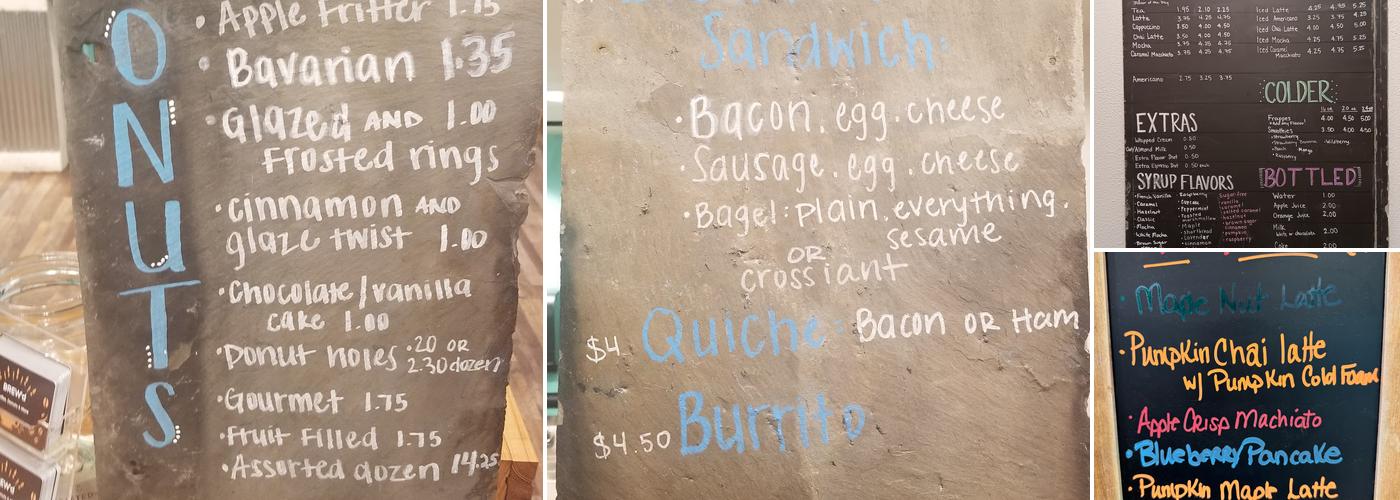 DONUTS
· Apple Fritter 1.75
· Bavarian 1.35
· Glazed AND 1.00
Frosted rings
· cinnamon AND
glaze twist 1.00
· Chocolate/vanilla
cake 1.00
· Donut holes ·.20 OR
2.30 dozen
· Gourmet 1.75
· Fruit Filled 1.75
· Assorted dozen 14.25
BREW'd
Sandwich:
· Bacon, egg, cheese
· Sausage, egg, cheese
· Bagel: plain, everything,
sesame
OR
crossiant
$4 Quiche: Bacon OR Ham
$4.50 Burrito
Tea 1.95 2.10 2.25
Latte 3.75 4.25 4.75
Cappuccino 3.50 4.00 4.50
Chai Latte 3.50 4.00 4.50
Mocha 3.75 4.25 4.75
Caramel Macchiato 3.75 4.25 4.75
Americano 2.75 3.25 3.75
Iced Latte 4.25 4.75 5.25
Iced Americano 3.25 3.75 4.25
Iced Chai Latte 4.00 4.50 5.00
Iced Mocha 4.25 4.75 5.25
Iced Caramel 4.25 4.75 5.25
Macchiato
COLDER
Frappes 4.00 4.50 5.00
Smoothies 3.50 4.00 4.50
EXTRAS
Whipped Cream 0.50
Milk 0.50
Extra Flavor Shot 0.50
Extra Espresso Shot 0.50 each
SYRUP FLAVORS
· French Vanilla
· Caramel
· Hazelnut
· Classic
· Mocha
· White Mocha
· Brown Sugar
· Raspberry
· Cupcake
· Peppermint
· Toasted
marshmallow
· Maple
· shortbread
· Lavender
· cinnamon
Sugar-free
· vanilla
· caramel
· salted caramel
· hazelnut
· brown sugar
· cinnamon
· pumpkin
· raspberry
BOTTLED
Water 1.00
Apple Juice 2.00
Orange Juice 2.00
Milk
White or chocolate 2.00
Coke 2.00
· Maple Nut Latte
· Pumpkin Chai latte
w/ Pumpkin Cold Foam
· Apple Crisp Machiato
· Blueberry Pancake
· Pumpkin Magic Latte